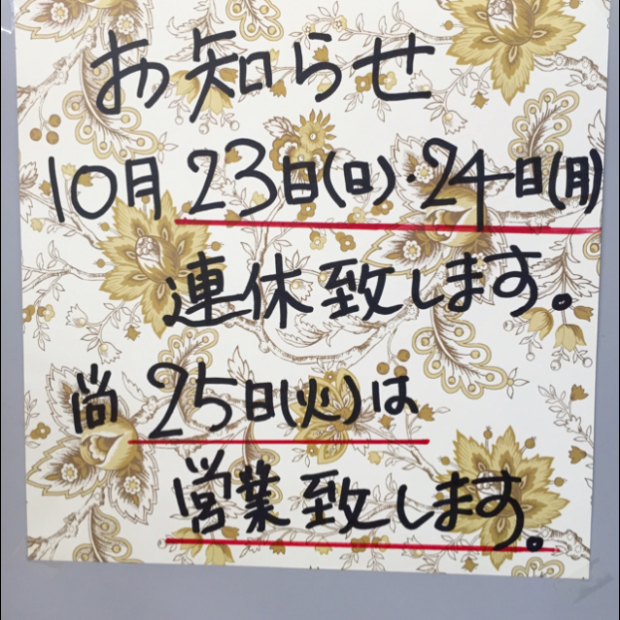 お知らせ
10月23日(日)・24日(月)
連休致します。
尚25日(火)は
営業致します。